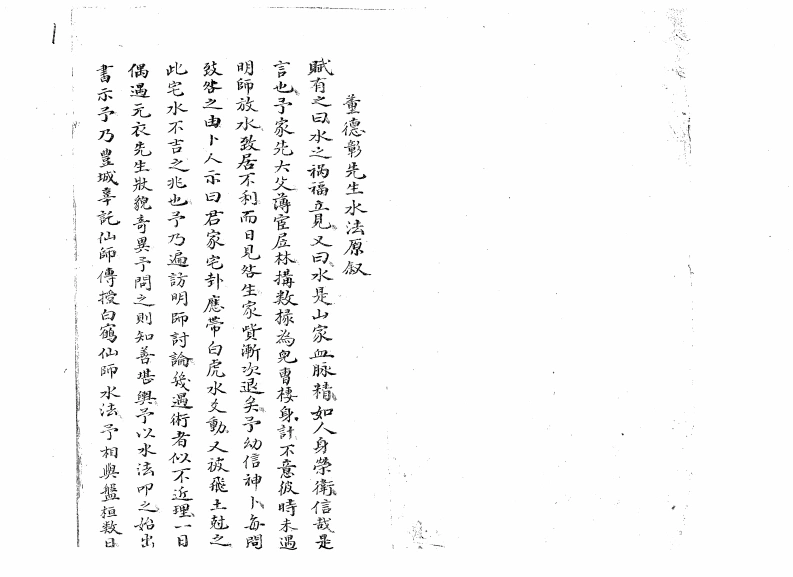 董德彰先生水法原叙
賦有之曰水之祸福立見又曰水是山家血脉精如人身榮衛信哉是
言也予家先大父薄宦居林搆数椽為児曹棲身計不意彼時未遇
明師放水致居不利而日見咎生家貲漸次退矣予幼信神卜每問
致咎之由卜人示曰君家宅卦應帶白虎水爻動又被飛土尅之
此宅水不吉之兆也予乃遍訪明師討論幾遇術者似不近理一日
偶遇元衣先生狀貌奇異予問之則知善堪輿予以水法叩之始出
書示予乃豊城辜託仙師傳授白鶴仙師水法予相與盤桓数日